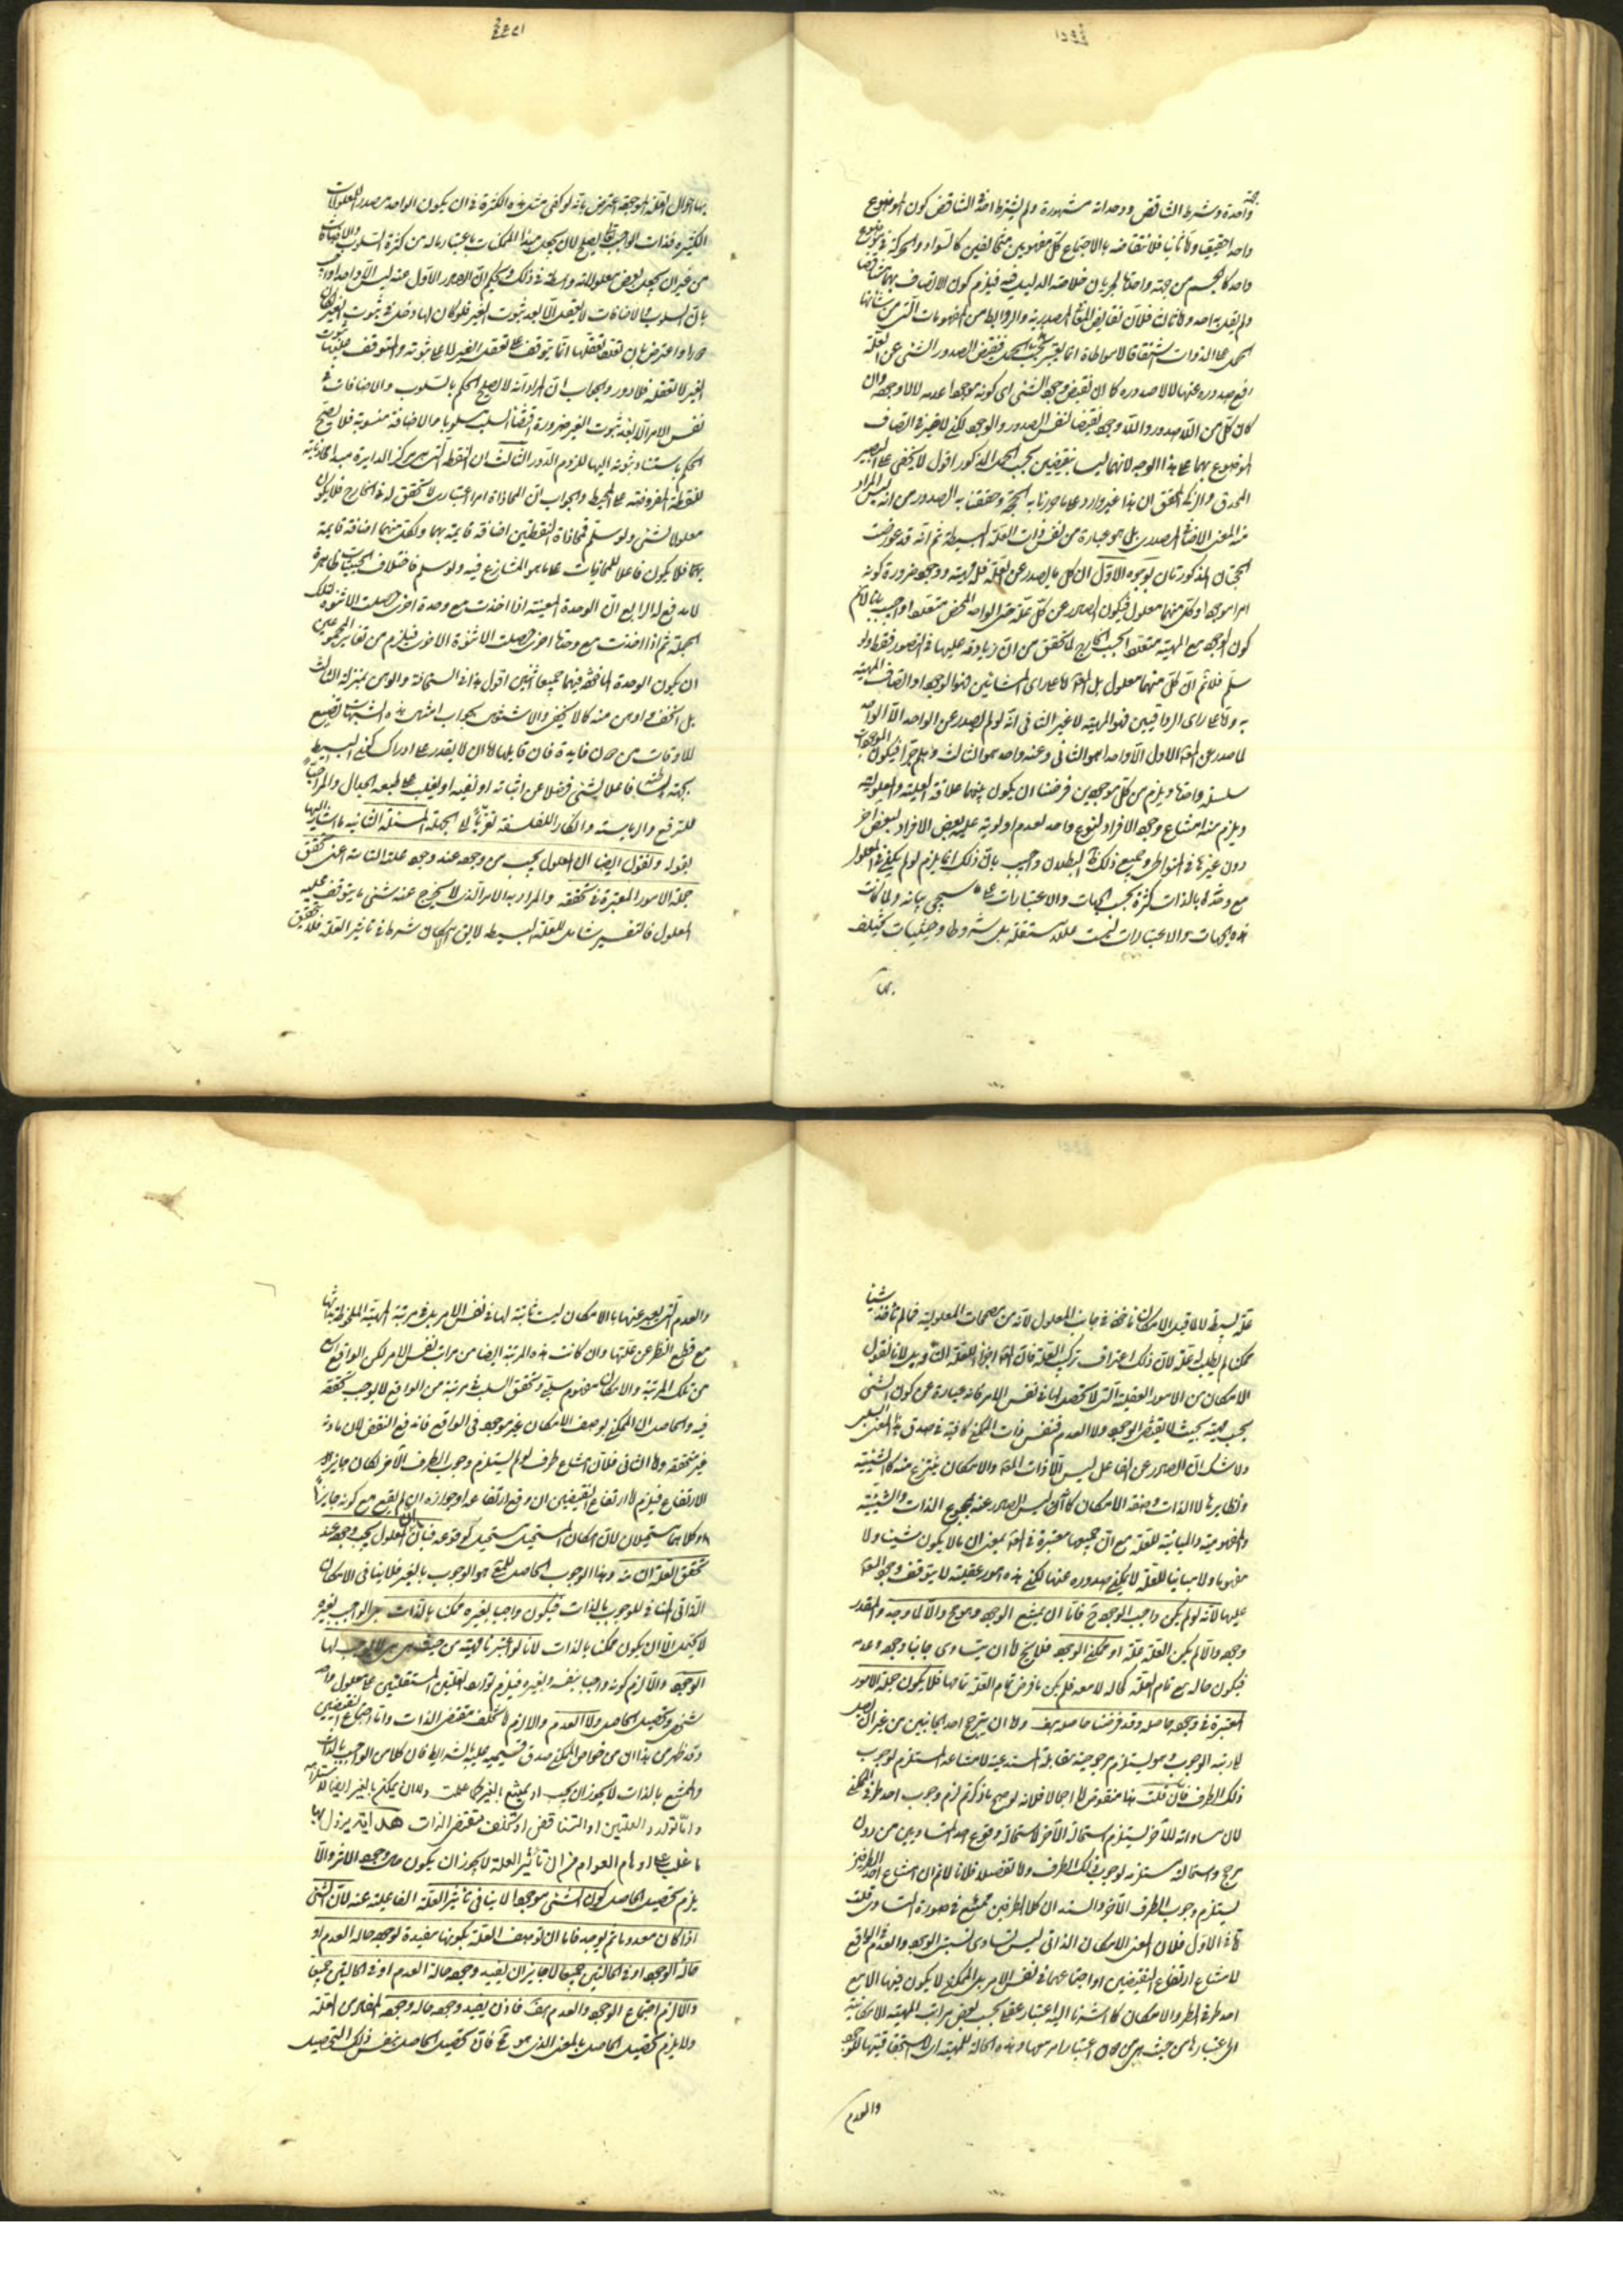 واحدة وشرط التناقض ووحداته مشهورة ولم يشترط احد في التناقض كون الموضوع
واحدا حقيقيا واما ثانيا فلانتقاضه بالاجتماع كل مفهومين متخالفين كالسواد والحركة في موضوع
واحد كالجسم من جهة واحدة لجريان خلاصة الدليل فيه فيلزم كون الاتصاف بهما تناقضا
ولم يقل به احد واما ثالثا فلان نقايض المعاني المصدرية والروابط من المفهومات التي من شانها
الحمل على الذوات اشتقاقا لا مواطاة انما يعتبر بحسب ذلك الحمل فنقيض الصدور الشيء عن العلة
رفع صدوره عنها لا لا صدوره كما ان نقيض وجود الشيء اي كونه موجودا عدمه لا لا وجوده وان
كان كل من اللاصدور واللاوجود نقيضا لنفس الصدور والوجود لكن لا ضير في اتصاف
الموضوع بهما على هذا الوجه لانهما ليسا بنقيضين بحسب الحمل المذكور اقول لا يخفى على البصير
المحدق والزكي المحقق ان هذا غير وارد على ما حررنا به الحجة وحققنا به الصدور من انه ليس المراد
منه المعنى الاضافي المصدري بل هو عبارة من نفس ذات العلة البسيطة ثم انه قد عورضت
الحجتان المذكورتان بوجوه الاول ان كل ما يصدر عن العلة فله مهية ووجود ضرورة كونه
امرا موجودا وكل منهما معلول فيكون الصادر عن كل علة حتى الواحد المحض متعددا واجيب بانا لانم
كون الوجود مع المهية متعددا بحسب الخارج لما تحقق من ان زيادته عليها في التصور فقط ولو
سلم فلا نم ان كل منهما معلول بل المعلول على راي المشائين هو الوجود او اتصاف المهية
به واما على راي الرواقيين فهو المهية لا غير الثاني انه لو لم يصدر عن الواحد الا الواحد
لما صدر عن المعلول الاول الا واحد هو الثاني وعنه واحد هو الثالث وهلم جرا فيكون الموجودات
سلسلة واحدة ويلزم من كل موجودين فرضنا ان يكون بينهما علاقة العلية والمعلولية
ويلزم منه امتناع وجود الافراد لنوع واحد لعدم اولوية علية بعض الافراد لبعض اخر
دون غيرها في المتواطي وجميع ذلك ظاهر البطلان واجيب بان ذلك انما يلزم لو لم يكن في المعلول
مع وحدته بالذات كثرة بحسب الجهات والاعتبارات على ما سيجيء بيانه ولما كانت
هذه الجهات والاعتبارات ليست عللا مستقلة بل شروطا وحيثيات تختلف
بها
بها احوال العلة الموجبة اعترض بانه لو كفى مثل هذه الكثرة في ان يكون الواحد مصدرا للمعلولات
الكثيرة فذات الواجب تعالى يصلح لان يجعل مبدا للممكنات باعتبار ما له من كثرة السلوب والاضافات
من غير ان يجعل بعض معلولاته واسطة في ذلك ويحكم بان الصادر الاول منه ليس الا واحدا واجيب
بان السلوب والاضافات لا يعقل الا بعد ثبوت الغير فلو كان لها دخل في ثبوت الغير لكان
دورا واعترض بان تعقلها انما يتوقف على تعقل الغير لا على ثبوته والمتوقف عليها ثبوت
الغير لا تعقله فلا دور والجواب ان المراد انه لا يصح الحكم بالسلوب والاضافات في
نفس الامر الا بعد ثبوت الغير ضرورة اقتضاء السلب مسلوبا والاضافة منسوبا فلا يصح
الحكم باستناد ثبوته اليها للزوم الدور الثالث ان النقطة التي هي مركز الدايرة مبدا لمحاذياته
للنقطة المفروضة على المحيط والجواب ان المحاذاة امر اعتباري لا تحقق له في الخارج فلا يكون
معلولا لشيء ولو سلم فمحاذاة النقطتين اضافة قايمة بهما ولكل منهما اضافة قايمة
بهما فلا يكون فاعلا للمحاذيات على ما هو المتنازع فيه ولو سلم فاختلاف الحيثيات ظاهرة
لا مدفع له الرابع ان الوحدة المعينة اذا اخذت مع وحدة اخرى حصلت الاثنوة لتلك
الجملة ثم اذا اخذت مع وحدة اخرى حصلت الاثنوة الاخرى فيلزم من تغاير المجموعين
ان يكون الوحدة الماخوذة فيهما جميعا اثنين اقول هذا في السخافة والوهن بمنزلة الثالث
بل اسخف واوهن منه كما لا يخفى والاشتغال بجواب امثال هذه الشبهات تضييع
للاوقات من دون فايدة فان قايلها لا ان لا يقدر على ادراك كنه البسيط
للترفع والرياسة وانكار الفلسفة تعربا الى الجملة المسئلة الثانية ما اشار اليها
بقوله ونقول ايضا ان المعلول يجب من وجوده عند وجود علته التامة اعني تحقق
جملة الامور المعتبرة في تحققه والمراد به الامر الذي لا يخرج عنه شيء ما يتوقف عليه
المعلول فالتفسير شامل للعلة البسيطة لا يقال ان الامكان شرط في تاثير العلة فلا يتحقق
علة بسيطة لانا نقول الامكان ماخوذ في جانب المعلول لانه من مصححات المعلولية فما لم ناخذ شيئا
ممكنا لم يطلب له علة لان ذلك اعتراف بتركب العلة
الامكان من الامور العقلية التي لا تحصل لها في نفس الامر فانه عبارة عن كون الشيء
بحسب مهيته بحيث لا يقتضي الوجود ولا العدم فنفس ذات الممكن كافية في صدق هذا المعنى السلبي
ولا شك ان الصادر عن الفاعل ليس الا ذات المعلول والامكان ينتزع منه كالشيئية
ونظايرها لا الذات وصفة الامكان كما ان ليس الصادر عنه مجموع الذات والشيئية
والمفهومية والمباينة للعلة مع ان جميعها معتبرة في المعلول بمعنى ان ما لا يكون شيئا ولا
مفهوما ولا مباينا للعلة لا يمكن صدوره عنها لكن هذه امور عقلية لا يتوقف وجود المعلول
عليها لانه لو لم يكن واجب الوجود ح فاما ان يمتنع الوجود وهو مح والا لما وجد والمقدر
وجوده والا لم يكن العلة علة او ممكن الوجود فلا يخ اما ان يتساوى جانبا وجوده وعدمه
فيكون حاله مع تمام العلة كحاله لا معه فلم يكن ما فرض تمام العلة تمامها فلا يكون جملة الامور
المعتبرة في وجوده حاصلة وقد فرضنا حاصلة هف واما ان يترجح احد الجانبين من غير ان يصل
الى رتبة الوجوب وهو يستلزم مرجوحية مقابلة المستدعية لامتناعه المستلزم لوجوب
ذلك الطرف فان قلت هذا منقوض اما اجمالا فلانه لو صح ما ذكرتم لزم وجوب احد طرفي الممكن
لان مساواته للآخر يستلزم استحالة الآخر لاستحالة وقوع احد المتساويين من دون
مرجح واستحالته مستلزمة لوجوب ذلك الطرف واما تفصيلا فلانا لا نم ان امتناع احد الطرفين
يستلزم وجوب الطرف الآخر والسند ان كلا الطرفين ممتنع في صورة التساوي قلت
اما في الاول فلان معنى الامكان الذاتي ليس تساوي نسبة الوجود والعدم في الواقع
لامتناع ارتفاع النقيضين او اجتماعهما في نفس الامر بل الممكن لا يكون فيها الا مع
احد طرفي الطرو والامكان كما اشرنا اليه اعتبار عقلي بحسب بعض مراتب المهية الامكانية
والعدم
والعدم التي يعبر عنها بالامكان ليست ثابتة لها في نفس الامر بل في مرتبة المهية الملحوظة بذاتها
مع قطع النظر عن علتها وان كانت هذه المرتبة ايضا من مراتب نفس الامر لكن الواقع اوسع
من تلك المرتبة والامكان مفهوم سلبي وتحقق السلب في مرتبة من الواقع لا يوجب تحققه
فيه والحاصل ان الممكن بوصف الامكان غير موجود في الواقع فاندفع النقض لان مادته
غير متحققة واما الثاني فلان امتناع طرف لو لم يستلزم وجوب الطرف الآخر لكان جايز
الارتفاع فيلزم اما ارتفاع النقيضين ان وقع ارتفاعه او جوازه ان لم يقع مع كونه جايزا
وكلاهما مستحيلان لان امكان المستحيل مستحيل كوقوعه فبان ان المعلول يجب وجوده عند
تحقق العلة التامة وهذا الوجوب الحاصل للشيء هو الوجوب بالغير فلا ينافي الامكان
الذاتي المنافي للوجوب بالذات فيكون واجبا بغيره ممكنا بالذات بل الواجب بغيره
لا يحتمل الا ان يكون ممكنا بالذات لانا لو اعتبرنا مهيته من حيث هي هي لا يجب لها
الوجود والا لزم كونه واجبا بنفسه وبغيره فيلزم توارد العلتين المستقلتين على معلول واحد
شخصي وتحصيل الحاصل ولا العدم والا لزم تخلف مقتضى الذات واما اجتماع النقيضين
وقد ظهر من هذا ان من خواص الممكن صدق قسيميه عليه بالشرايط فان كلا من الواجب بالذات
والممتنع بالذات لا يجوز ان يجب او يمتنع بالغير كما علمت ولا ان يمكن بالغير ايضا لاستلزامه
واما توارد العلتين او التناقض او تخلف مقتضى الذات هداية يزول بها
ما غلب على اوهام العوام من ان تاثير العلة لا يجوز ان يكون حال وجود الاثر والا
يلزم تحصيل الحاصل كون الشيء موجودا لا ينافي تاثير العلة الفاعلية عنه لان الشيء
اذا كان معدوما ثم يوجد فاما ان توصف العلة بكونها مفيدة لوجوده حالة العدم او
حالة الوجود او في الحالتين جميعا لا جايز ان يفيد وجوده حالة العدم او في الحالتين جميعا
والا لزم اجتماع الوجود والعدم هف فاذن يفيد وجوده حالة وجوده
ولا يلزم تحصيل الحاصل بالمعنى الذي هو مح فانه تحصيل الحاصل بنفس ذلك التحصيل